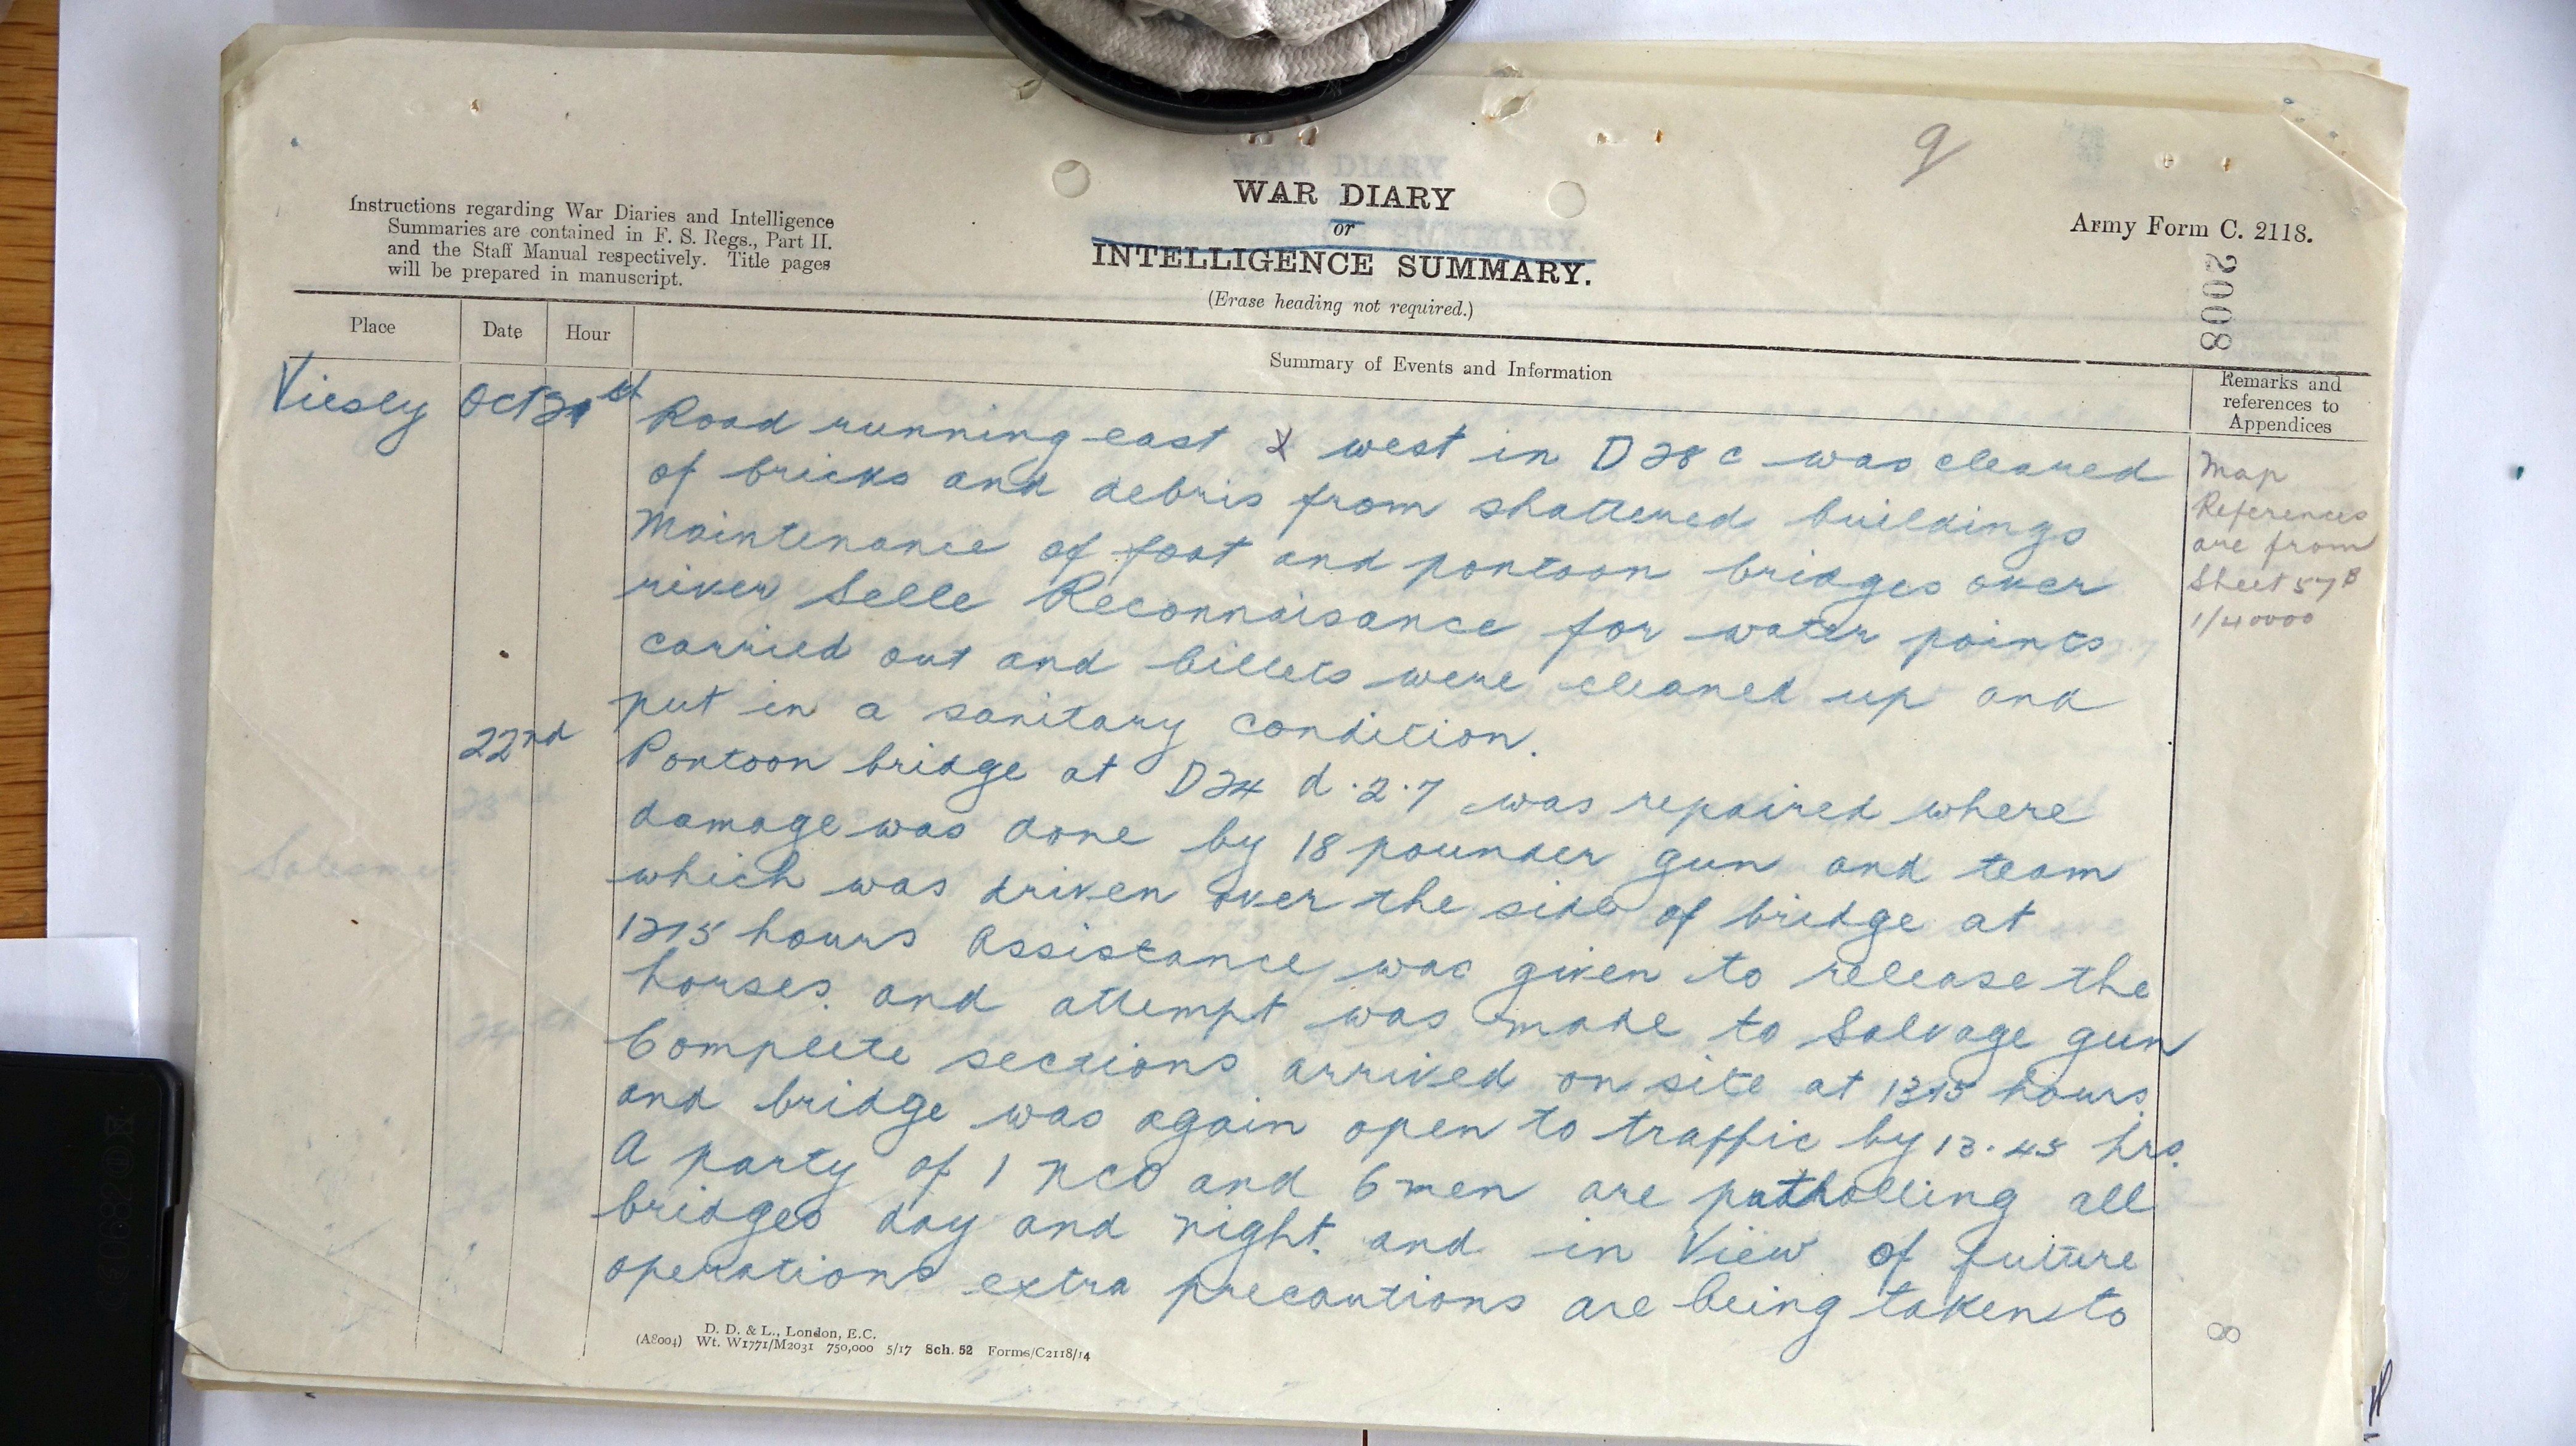 9
WAR DIARY
or
INTELLIGENCE SUMMARY.
(Erase heading not required.)
Instructions regarding War Diaries and Intelligence
Summaries are contained in F. S. Regs., Part II.
and the Staff Manual respectively. Title pages
will be prepared in manuscript.
Army Form C. 2118.
2008
Place
Date
Hour
Summary of Events and Information
Remarks and
references to
Appendices
Viesly Oct 21st Road running east & west in D28c was cleared
of bricks and debris from shattered buildings
Maintenance of foot and pontoon bridges over
river Selle Reconnaisance for water points
carried out and billets were cleaned up and
put in a sanitary condition.
22nd Pontoon bridge at D24 d.2.7 was repaired where
damage was done by 18 pounder gun and team
which was driven over the side of bridge at
1215 hours Assistance was given to release the
horses. and attempt was made to Salvage gun
Complete sections arrived on site at hours
and bridge was again open to traffic by 13.45 hrs.
A party of 1 NCO and 6 men are pathrolling all
bridges day and night. and in View of future
operations extra precautions are being taken to
Map
References
are from
Sheet 57B
1/40000
D. D. & L., London, E.C.
(A8004) Wt. W1771/M2031 750,000 5/17 Sch. 52 Forms/C2118/14
8